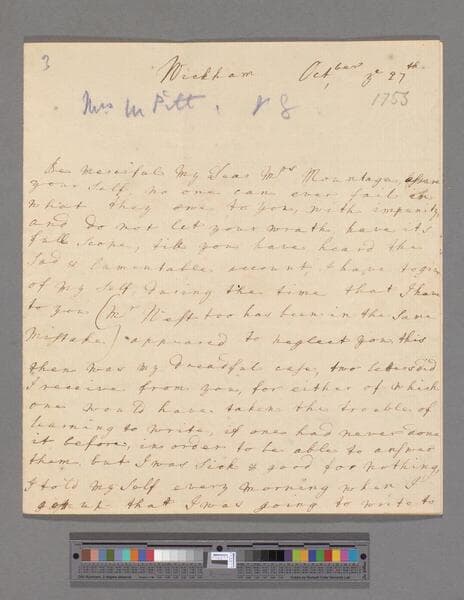 3
Wickham Octber ye 27th
Mrs W Pitt, 
1753
Be merciful My Dear Mrs Mountagu, assure
your self, no one can ever fail in
what they owe to You, with impunity
and do not let your wrath have its
full scope, till you have heard the
Sad & lamentable account I have to give
of my self, during the time that I have
to you (Mr West too has been in the same
Mistake) appeared to neglect you, this
then was my dreadful case, two letters did
I receive from you, for either of which
one would have taken the trouble of
learning to write, if one had never done
it before, in order to be able to answer
them, but I was Sick & good for nothing,
I told my self every morning when I
got up that I was going to write to